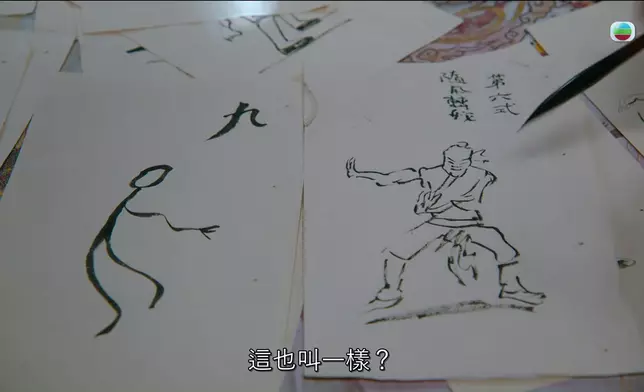 九
第六式
隨風轉舵
這也叫一樣？